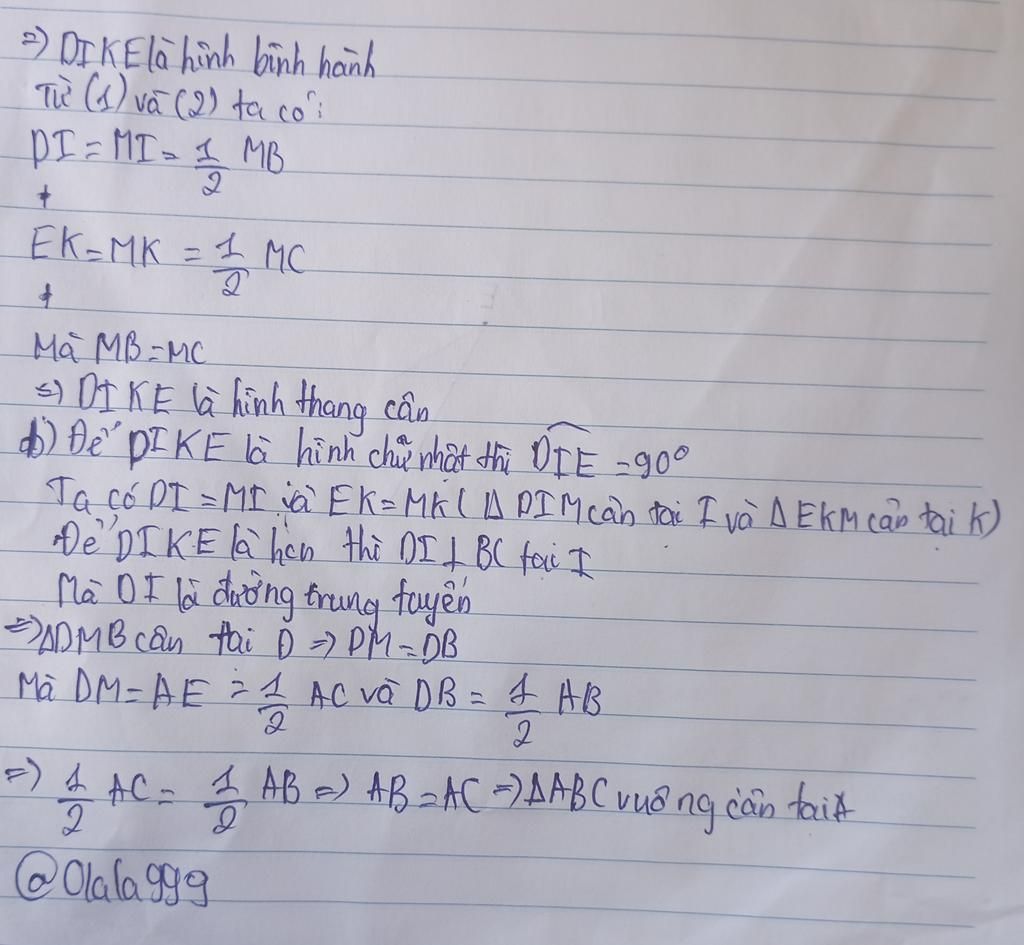 => DIKE là hình bình hành
Từ (1) và (2) ta có:
DI = MI = 1/2 MB
+
EK = MK = 1/2 MC
+
Mà MB = MC
=> DIKE là hình thang cân
b) Để DIKE là hình chữ nhật thì DIE = 90°
Ta có DI = MI và EK = MK ( Δ DIM cân tại I và Δ EKM cân tại K)
Để DIKE là hcn thì DI ⊥ BC tại I
Mà DI là đường trung tuyến
=> ΔDMB cân tại D => DM = DB
Mà DM = AE = 1/2 AC và DB = 1/2 AB
=> 1/2 AC = 1/2 AB => AB = AC => ΔABC vuông cân tại A
@Olala999